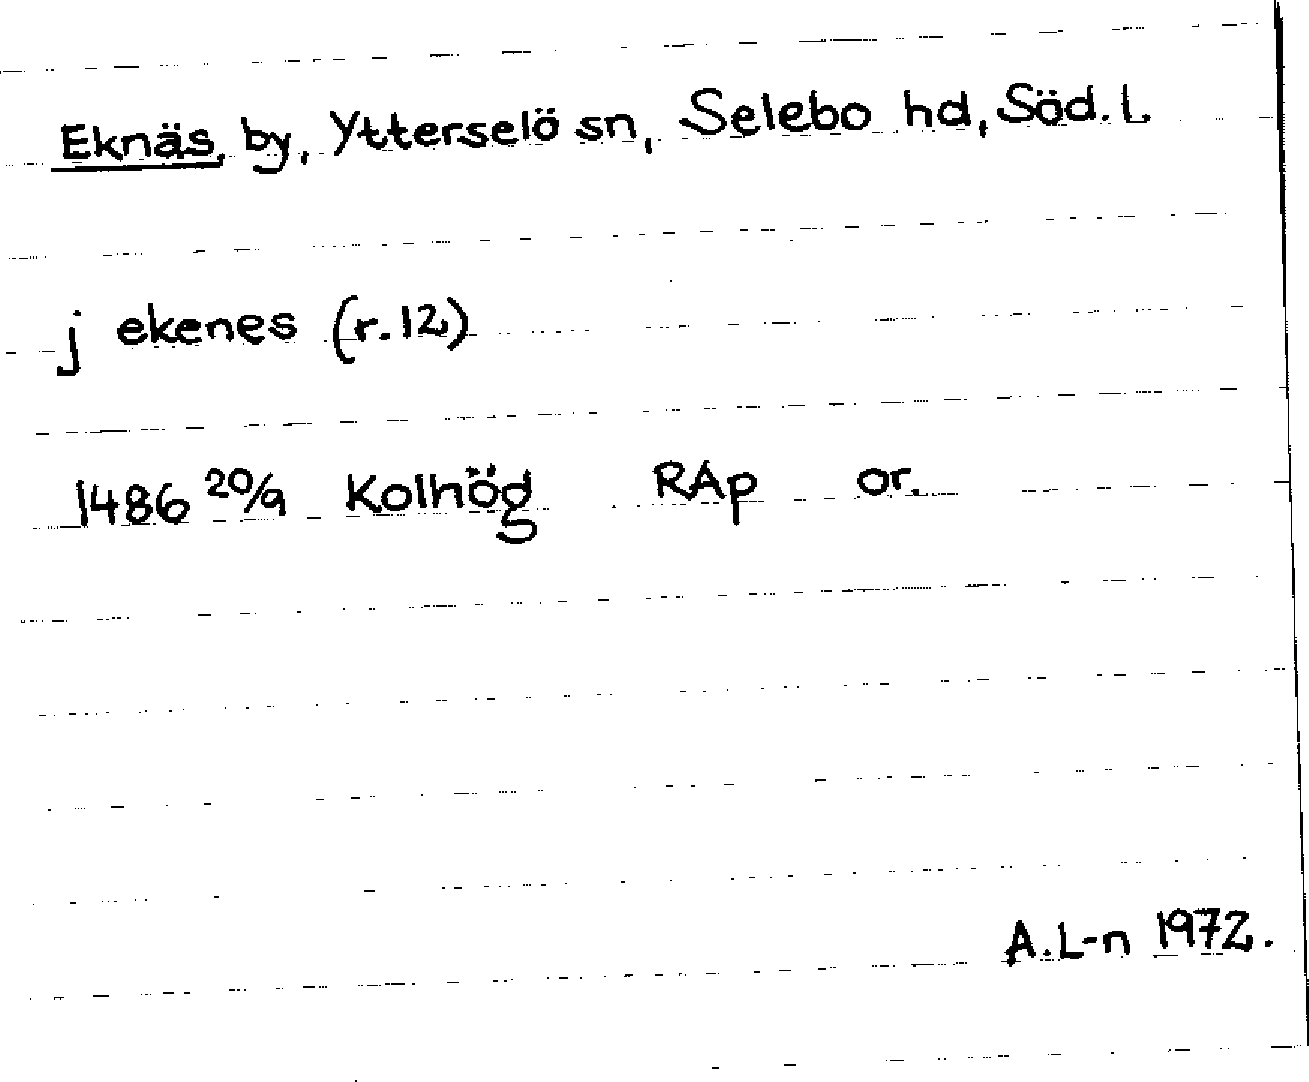 Eknäs, by, Ytterselö sn, Selebo hd, Söd. L
j ekenes (r.12)
1486 20/9 Kolhög RAp or.
A.L-n 1972.